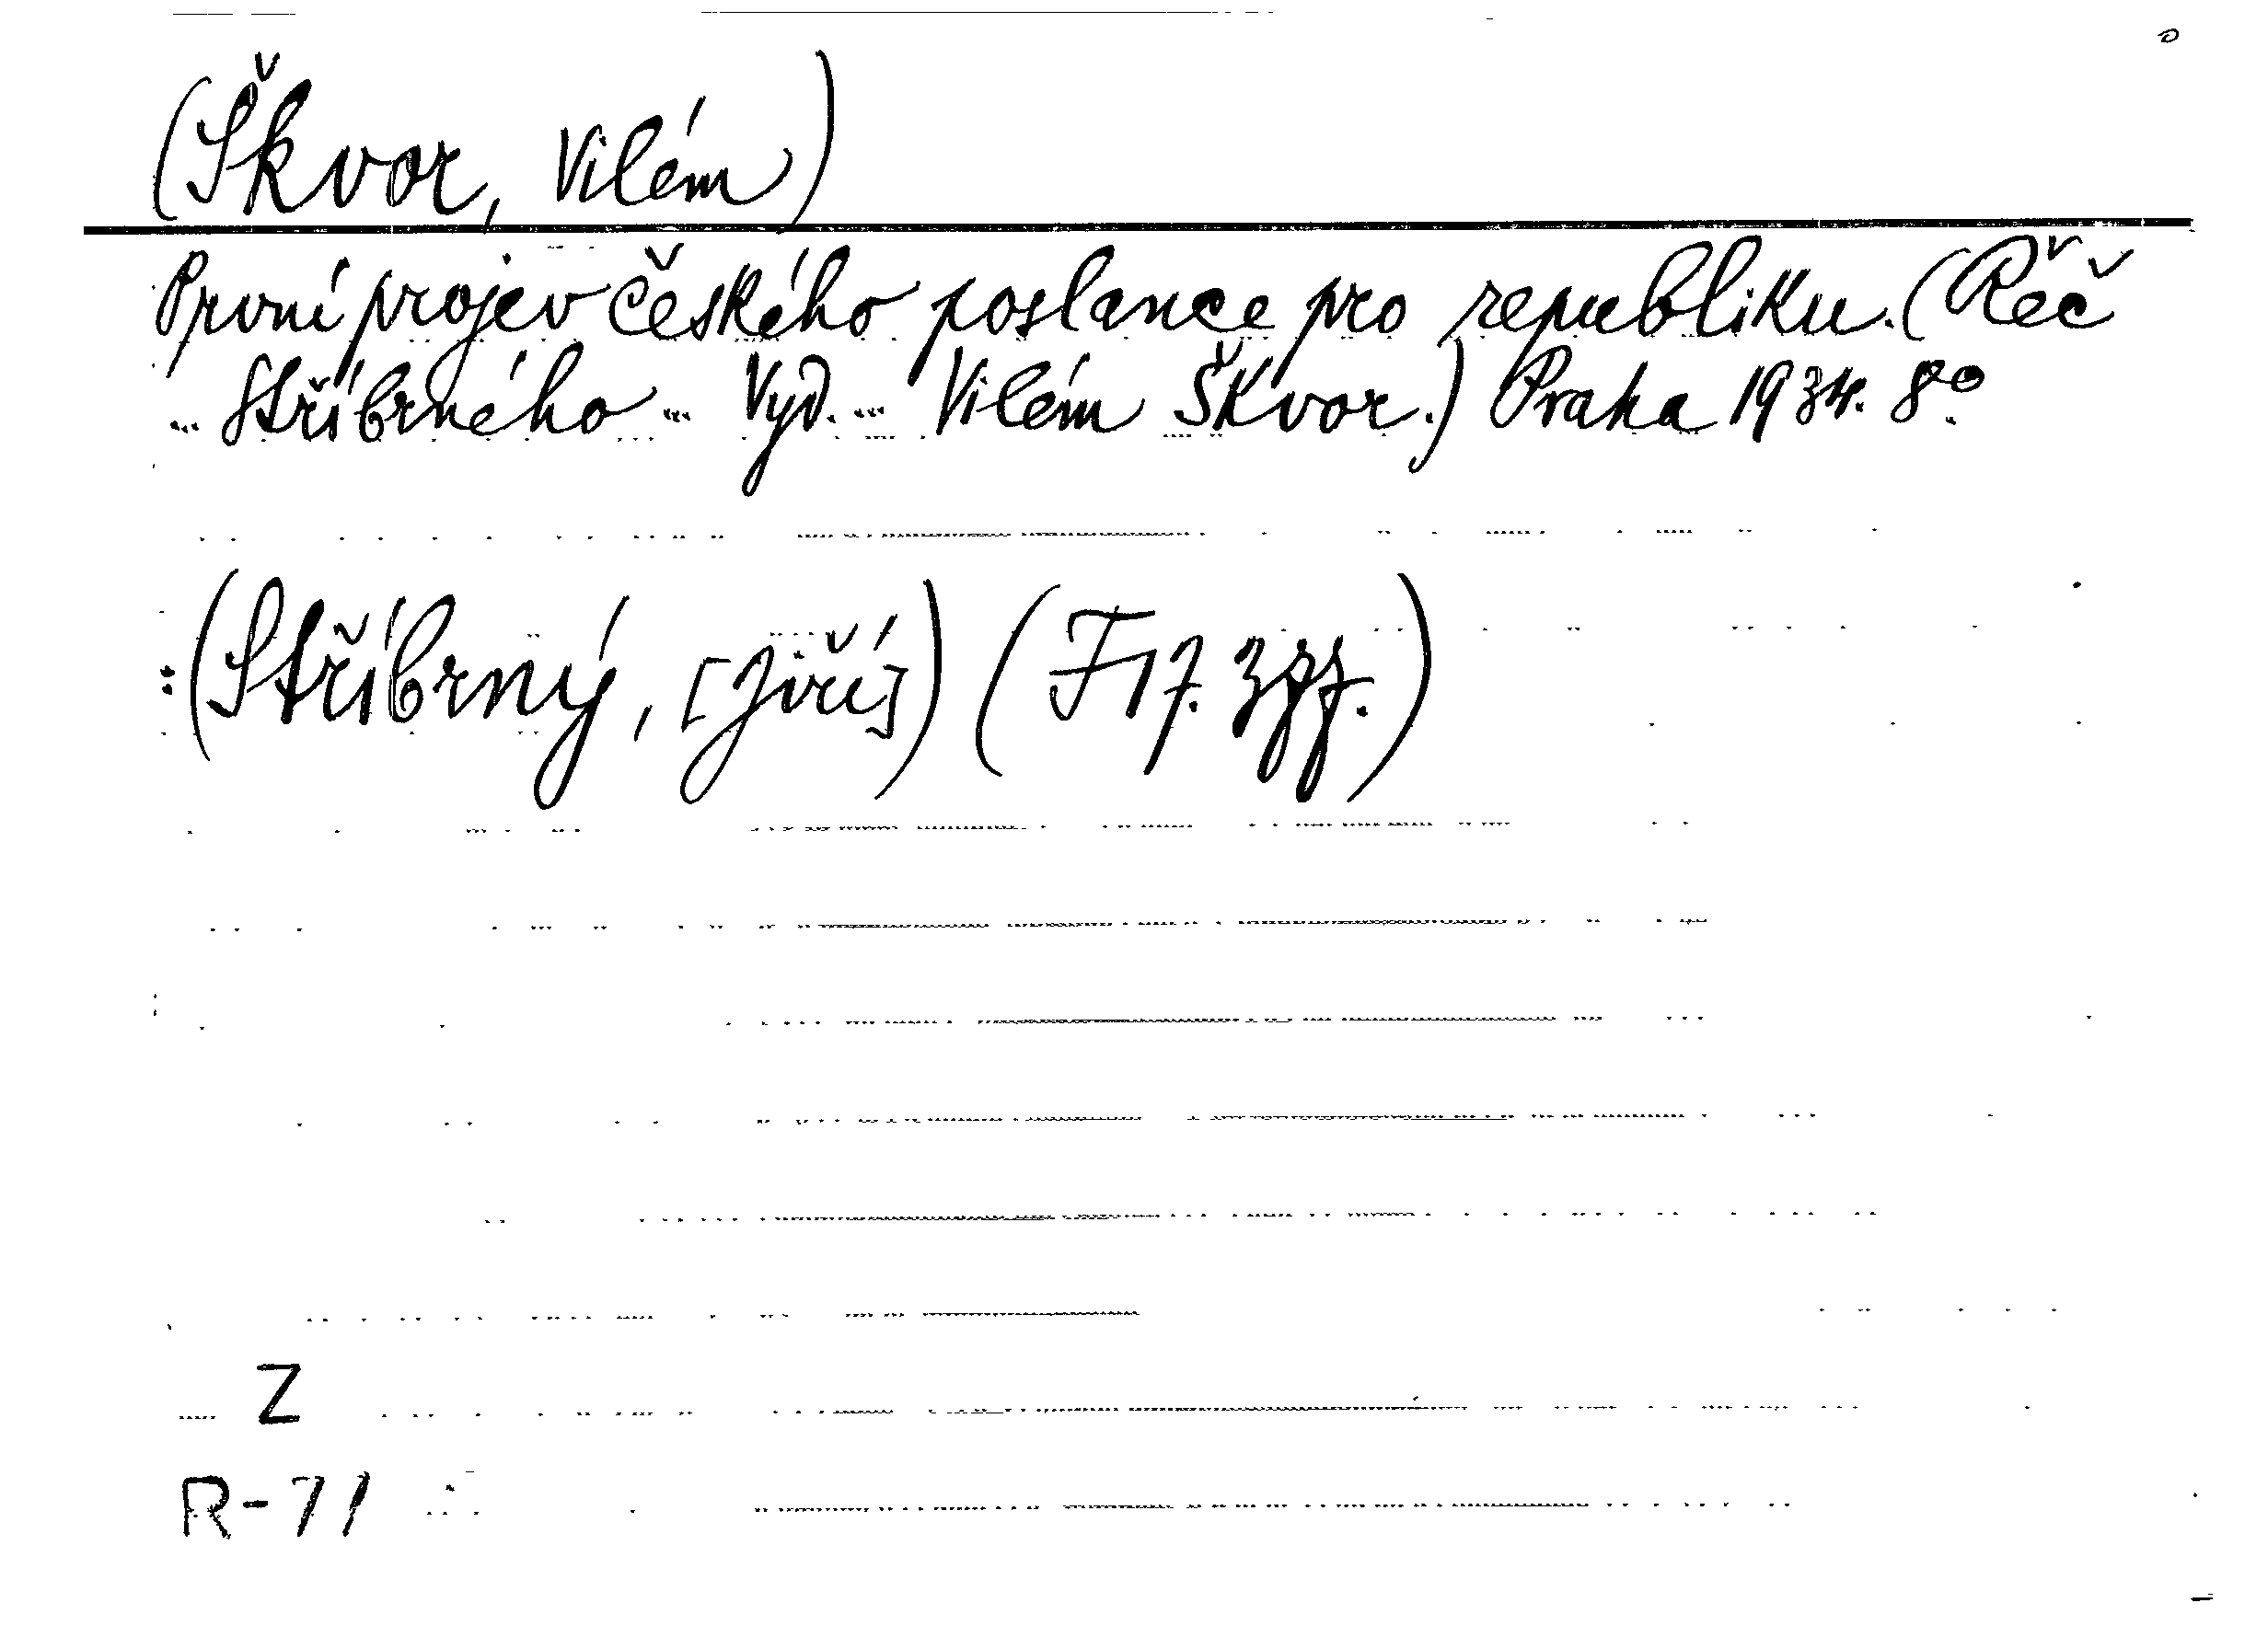 (Škvor, Vilém)
První projev českého poslance pro republiku. (Řeč
... Stříbrného ... Vyd. ... Vilém Škvor.) Praha 1934. 8°.
: (Stříbrný, [Jiří]) (F 17.
Z
R-71